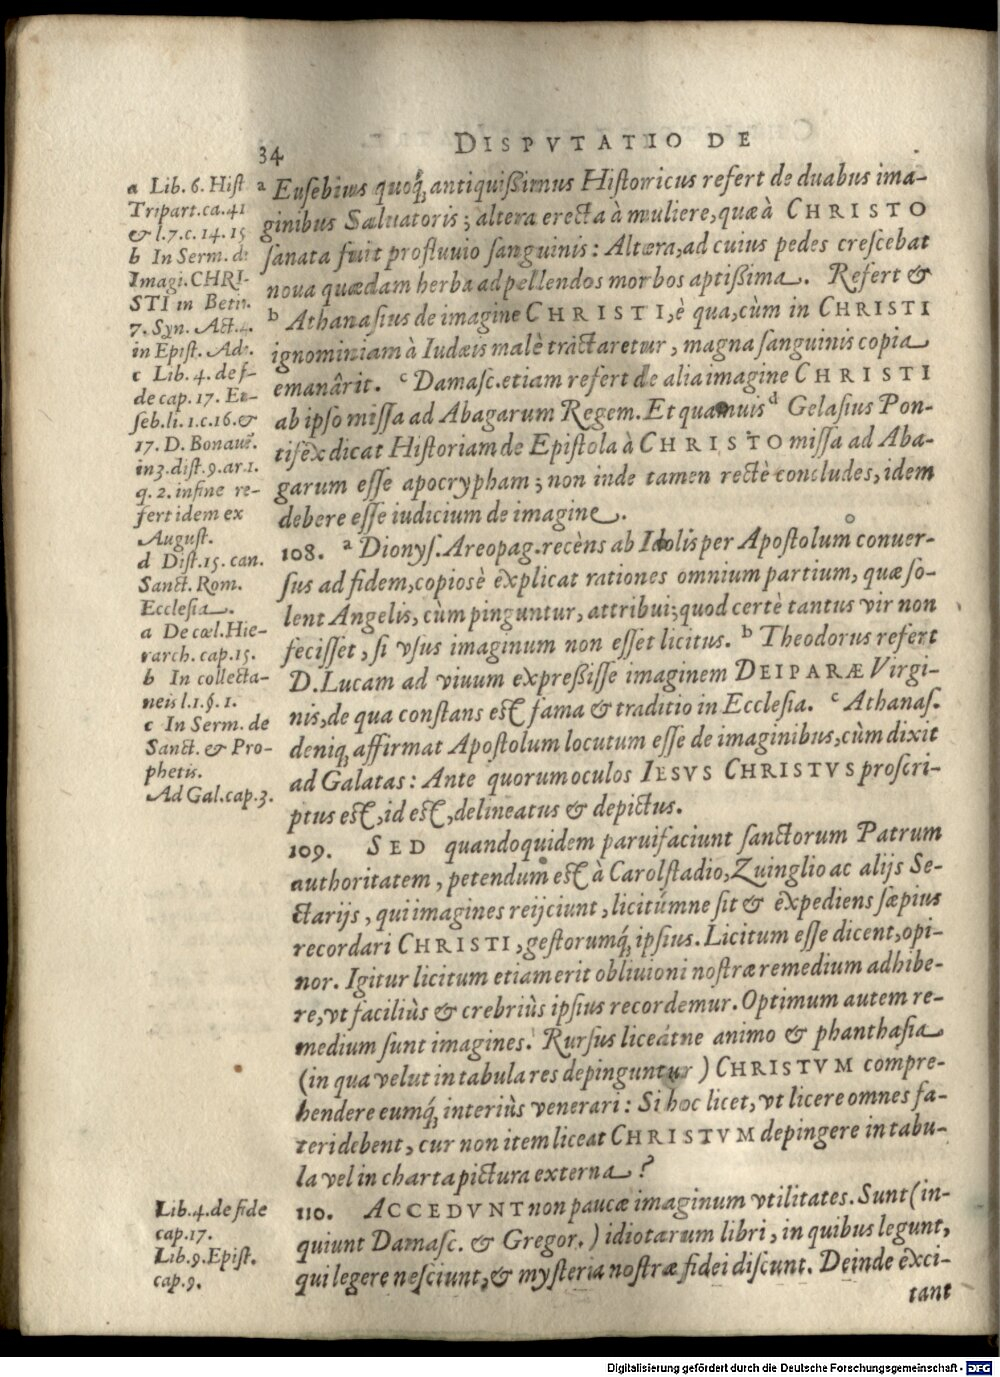 34 DISPVTATIO DE
a Eusebius quoq; antiquißimus Historicus refert de duabus ima-
ginibus Saluatoris; altera erecta à muliere, quæ à CHRISTO
sanata fuit profluuio sanguinis: Altera, ad cuius pedes crescebat
noua quædam herba ad pellendos morbos aptißima. Refert &
b Athanasius de imagine CHRISTI, è qua, cùm in CHRISTI
ignominiam à Iudæis malè tractaretur, magna sanguinis copia
emanârit. c Damasc. etiam refert de alia imagine CHRISTI
ab ipso missa ad Abagarum Regem. Et quamuis d Gelasius Pon-
tifex dicat Historiam de Epistola à CHRISTO missa ad Aba-
garum esse apocrypham; non inde tamen rectè concludes, idem
debere esse iudicium de imagine.
108. a Dionys. Areopag. recèns ab Idolis per Apostolum conuer-
sus ad fidem, copiosè explicat rationes omnium partium, quæ so-
lent Angelis, cùm pinguntur, attribui; quod certè tantus vir non
fecisset, si vsus imaginum non esset licitus. b Theodorus refert
D. Lucam ad viuum expreßisse imaginem DEIPARÆ Virgi-
nis, de qua constans est fama & traditio in Ecclesia. c Athanas.
deniq; affirmat Apostolum locutum esse de imaginibus, cùm dixit
ad Galatas: Ante quorum oculos IESVS CHRISTVS proscri-
ptus est, id est, delineatus & depictus.
109. SED quandoquidem paruifaciunt sanctorum Patrum
authoritatem, petendum est à Carolstadio, Zuinglio ac alijs Se-
ctarijs, qui imagines reijciunt, licitúmne sit & expediens sæpius
recordari CHRISTI, gestorumq́; ipsius. Licitum esse dicent, opi-
nor. Igitur licitum etiam erit obliuioni nostræ remedium adhibe-
re, vt faciliùs & crebriùs ipsius recordemur. Optimum autem re-
medium sunt imagines. Rursus liceátne animo & phanthasia
(in qua velut in tabula res depinguntur) CHRISTVM compre-
hendere eumq́; interiùs venerari: Si hoc licet, vt licere omnes fa-
teri debent, cur non item liceat CHRISTVM depingere in tabu-
la vel in charta pictura externa?
110. ACCEDVNT non paucæ imaginum vtilitates. Sunt (in-
quiunt Damasc. & Gregor.) idiotarum libri, in quibus legunt,
qui legere nesciunt, & mysteria nostræ fidei discunt. Deinde exci-
tant
a Lib. 6. Hist
Tripart. ca. 41
& l. 7. c. 14. 15
b In Serm. de
Imagi. CHRI-
STI in Berit.
7. Syn. Act. 4.
in Epist. Adr.
c Lib. 4. de f-
de cap. 17. Eu-
seb. li. 1. c. 16. &
17. D. Bonauē.
in 3. dist. 9. ar. 1.
q. 2. in fine re-
fert idem ex
August.
d Dist. 15. can.
Sanct. Rom.
Ecclesia.
a De cœl. Hie-
rarch. cap. 15.
b In collecta-
neis l. 1. §. 1.
c In Serm. de
Sanct. & Pro-
phetis.
Ad Gal. cap. 3.
Lib. 4. de fide
cap. 17.
Lib. 9. Epist.
cap. 9.
Digitalisierung gefördert durch die Deutsche Forschungsgemeinschaft - DFG